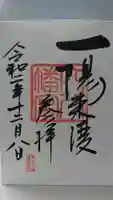 一陽来復
参拝
令和二年十二月八日